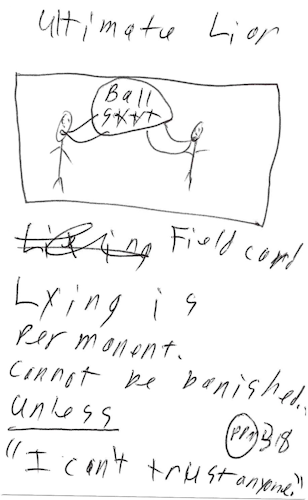 Ultimate Liar
Ball
Field card
Lying is
permanent.
cannot be banished..
unless
"I can't trust anyone."